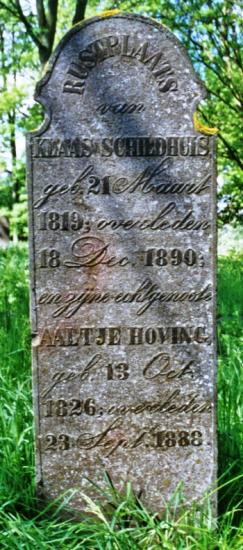 RUSTPLAATS
van
KLAAS SCHILDHUIS
geb. 21 Maart
1819; overleden
18 Dec. 1890;
en zijne echtgenoote
AALTJE HOVING,
geb. 13 Oct.
1826; overleden
23 Sept. 1888